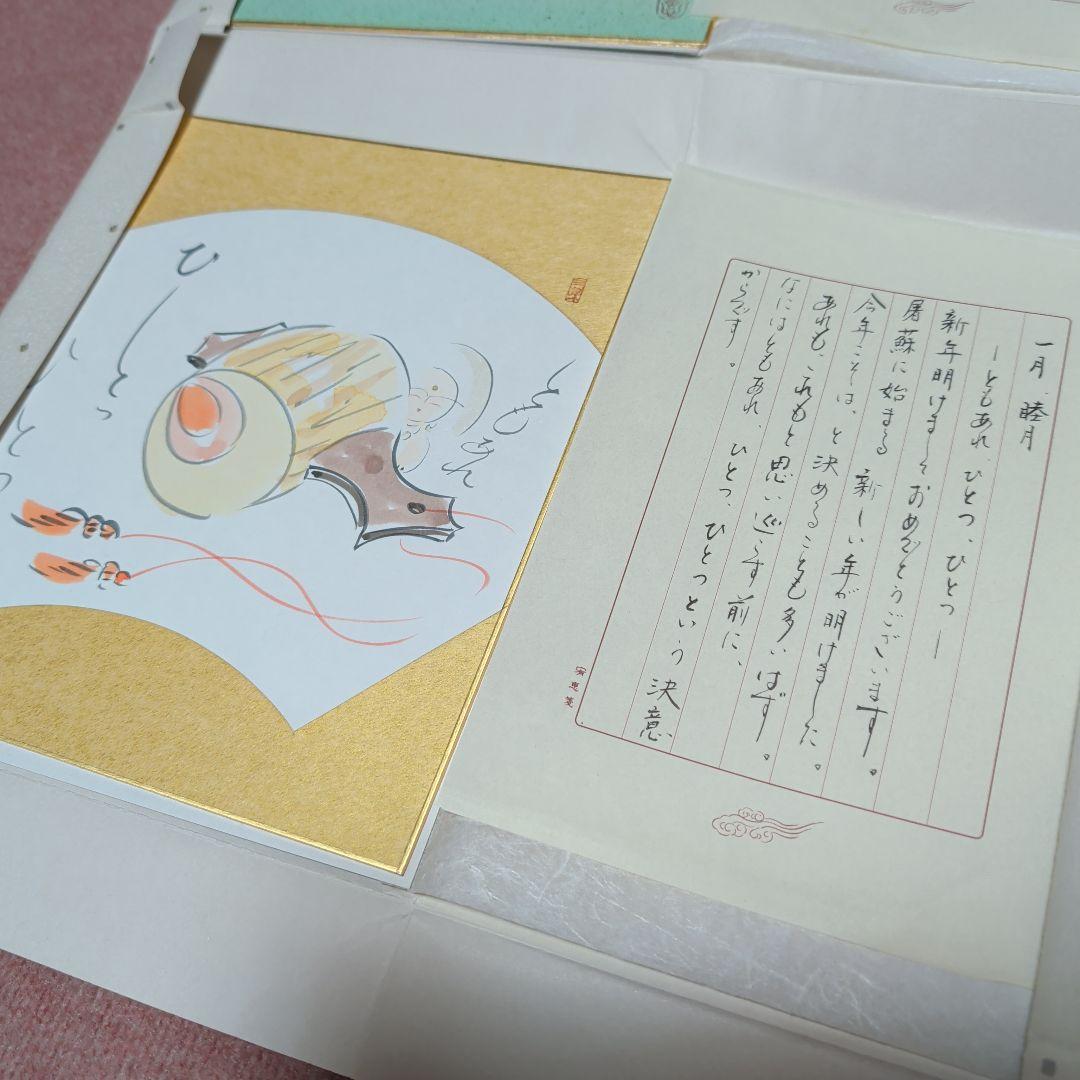 一月 睦月
―ともあれ、ひとつ、ひとつ―
新年明けましておめでとうございます。
屠蘇に始まる 新しい年が明けました。
今年こそは、と決めることも多いはず。
あれも、これもと思い巡らす前に、
なにはともあれ、ひとつ、ひとつという決意
からです。
ともあれ
ひーとつ
ひとつ